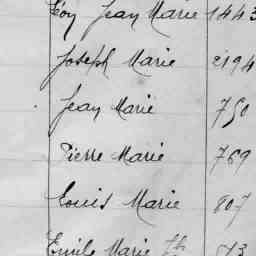 Léon Jean Marie 1443
Joseph Marie 2194
Jean Marie 750
Pierre Marie 769
Louis Marie 807
Emile Marie